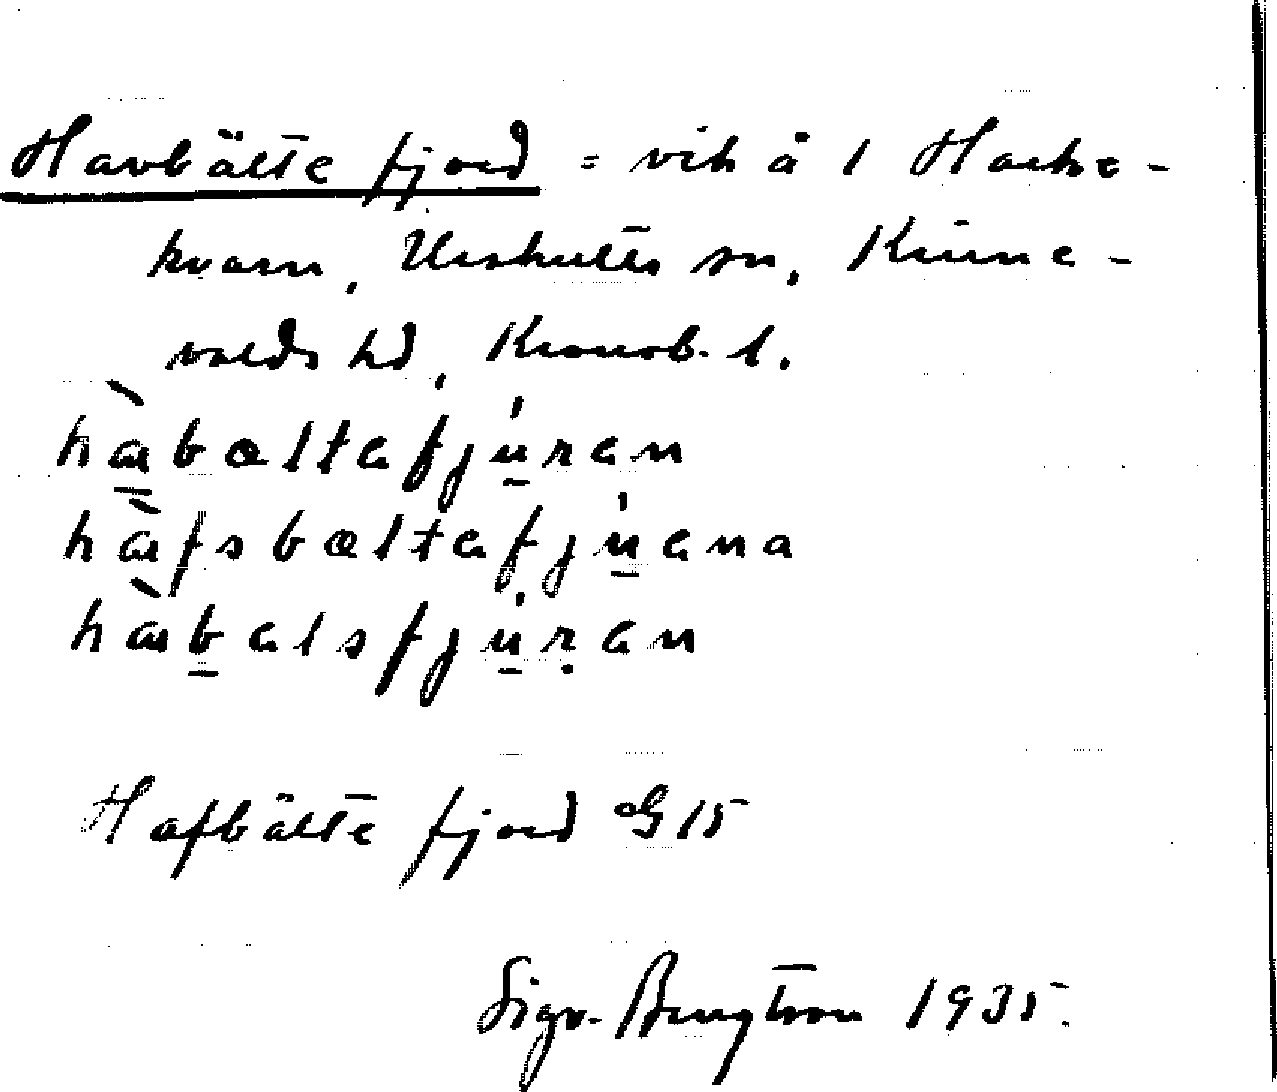 Havbälte fjord = vik å 1 Hacke-
kvarn, Urshults sn, Kinne-
valds hd, Kronob. l.
hàbæltafju̱ran
hàfsbæltafju̱rana
hàbalsfju̱ṛan
Hafbälte fjord G 15
Sigv. Bengtson 1935.